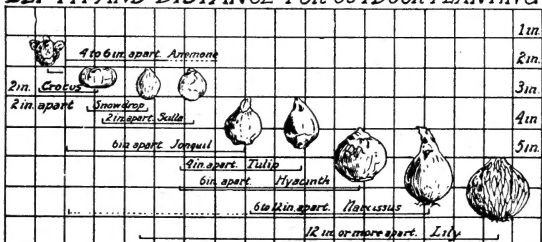 DEPTH AND DISTANCE FOR OUTDOOR PLANTING
1 in.
2 in.
4 to 6 in. apart Anemone
2 in. Crocus
3 in.
2 in apart
Snowdrop
2 in. apart Scilla
4 in
6 in apart Jonquil
5 in.
4 in. apart Tulip
6 in. apart Hyacinth
6 to 12 in. apart Narcissus
12 in. or more apart. Lily